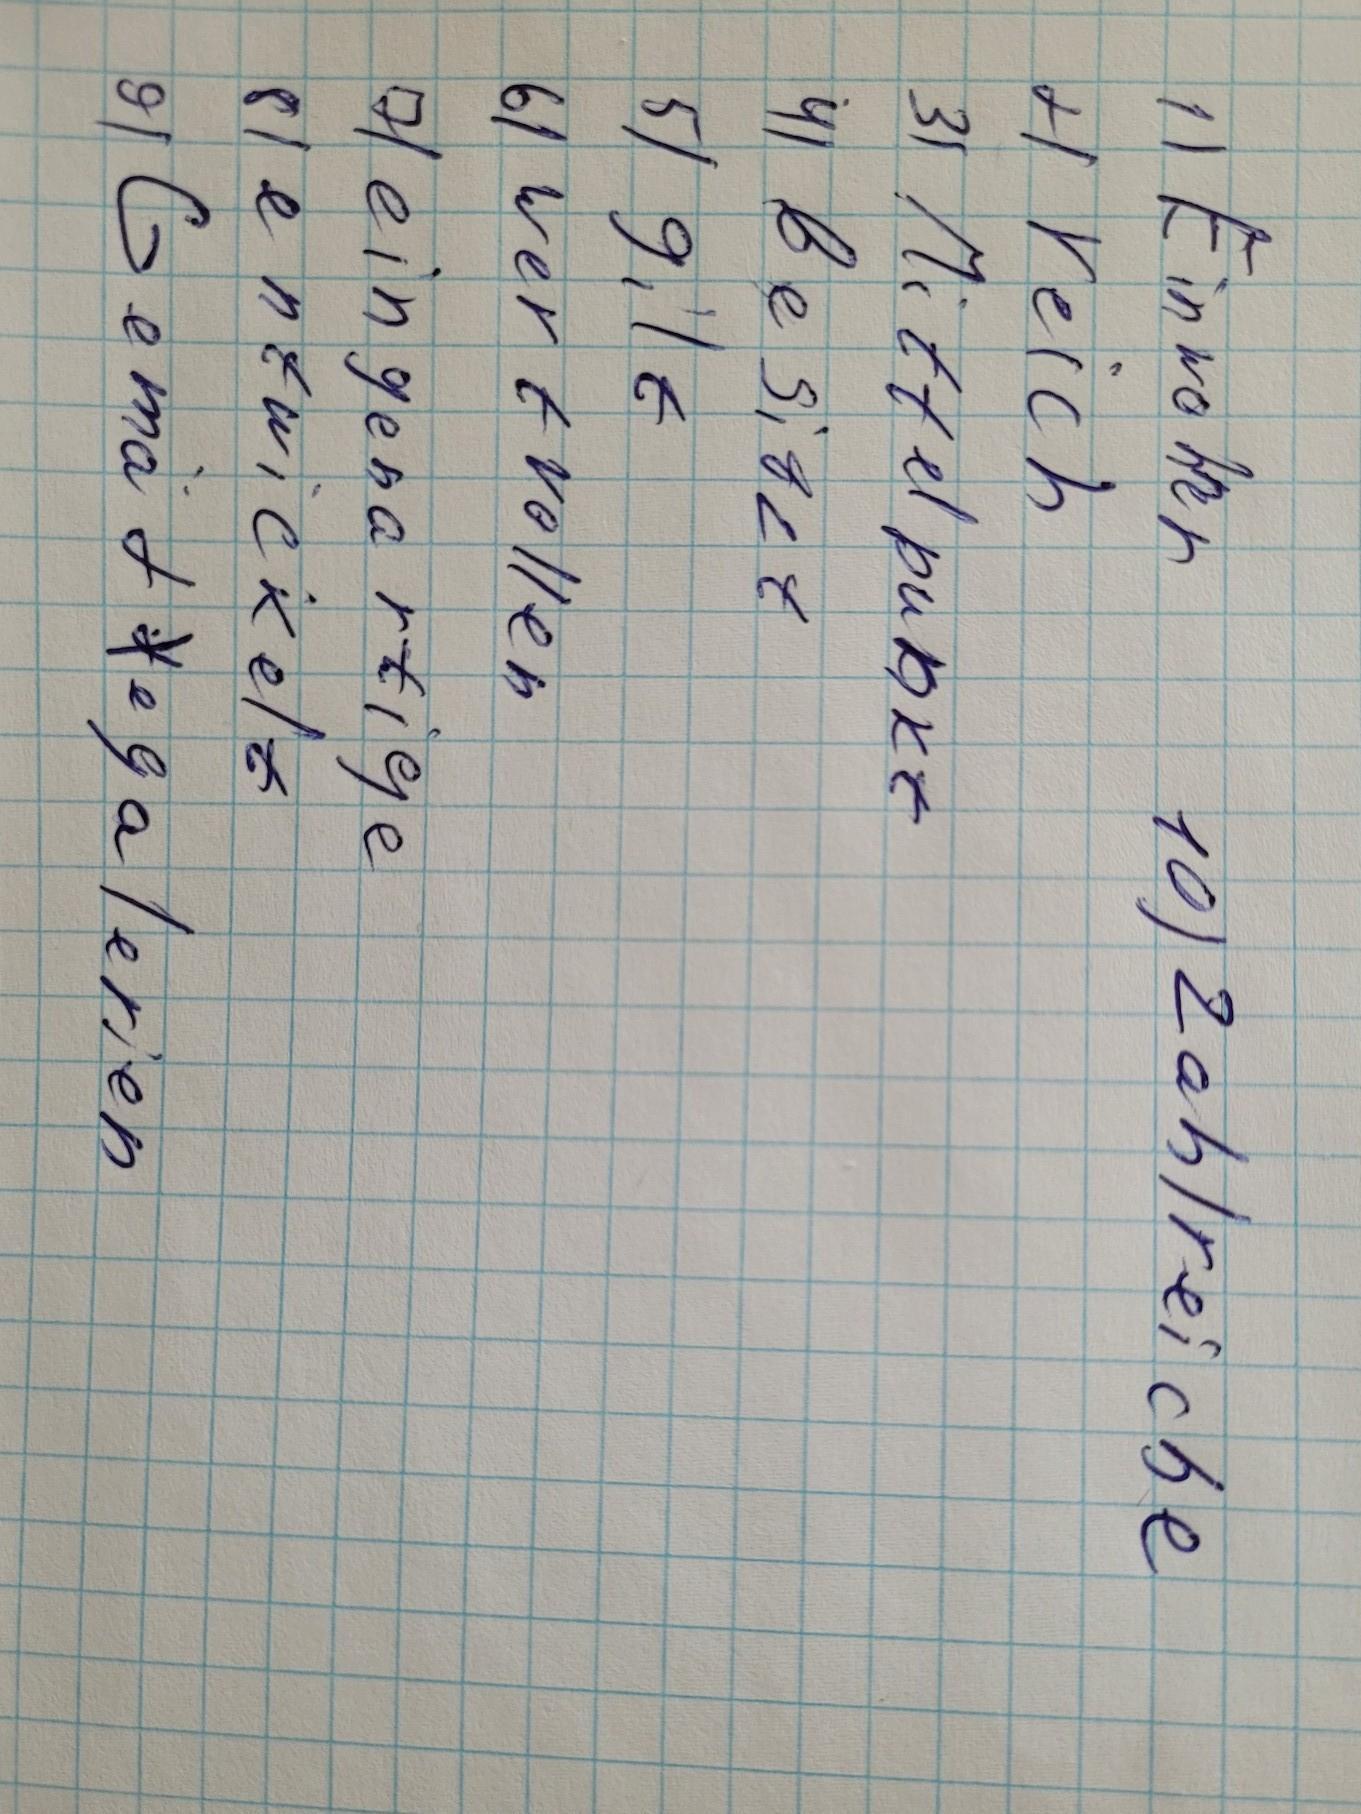 1) Einwohen
2) reich
3) Mittelpunkt
4) besitzt
5) gilt
6) wertvollen
7) eingenartige
8) entwickelt
9) Gemäldegalerien
10) Zahlreiche